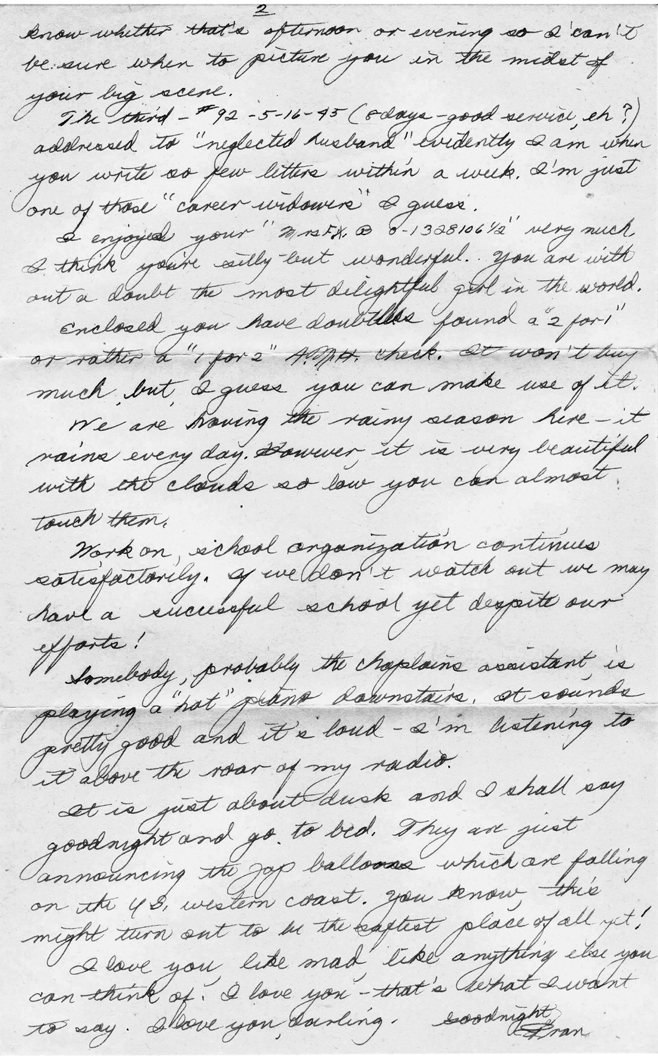 2
know whether that's afternoon or evening so I can't
be sure when to picture you in the midst of
your big scene.
The third - #92 - 5-16-45 (8 days - good service, eh?)
addressed to "neglected husband" evidently I am when
you write so few letters within a week. I'm just
one of those "career widowers" I guess.
I enjoyed your "Mrs F.K. B O-1328106½" very much
I think you're silly but wonderful. You are with
out a doubt the most delightful girl in the world.
Enclosed you have doubtless found a "2 for 1"
or rather a "1 for 2" check. It won't buy
much, but, I guess you can make use of it.
We are having the rainy season here - it
rains every day. However, it is very beautiful
with the clouds so low you can almost
touch them.
Work on school organization continues
satisfactorily. If we don't watch out we may
have a successful school yet despite our
efforts!
Somebody, probably the chaplains assistant is
playing a "hot" piano downstairs. It sounds
pretty good and it's loud - I'm listening to
it above the roar of my radio.
It is just about dusk and I shall say
goodnight and go to bed. They are just
announcing the Jap balloons which are falling
on the U.S. western coast. You know, this
might turn out to be the safest place of all yet!
I love you, like mad, like anything else you
can think of. I love you - that's what I want
to say. I love you, darling. Goodnight,
Fran